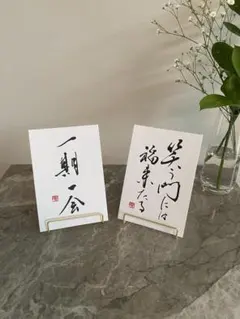 一期一会
笑う門には
福来たる